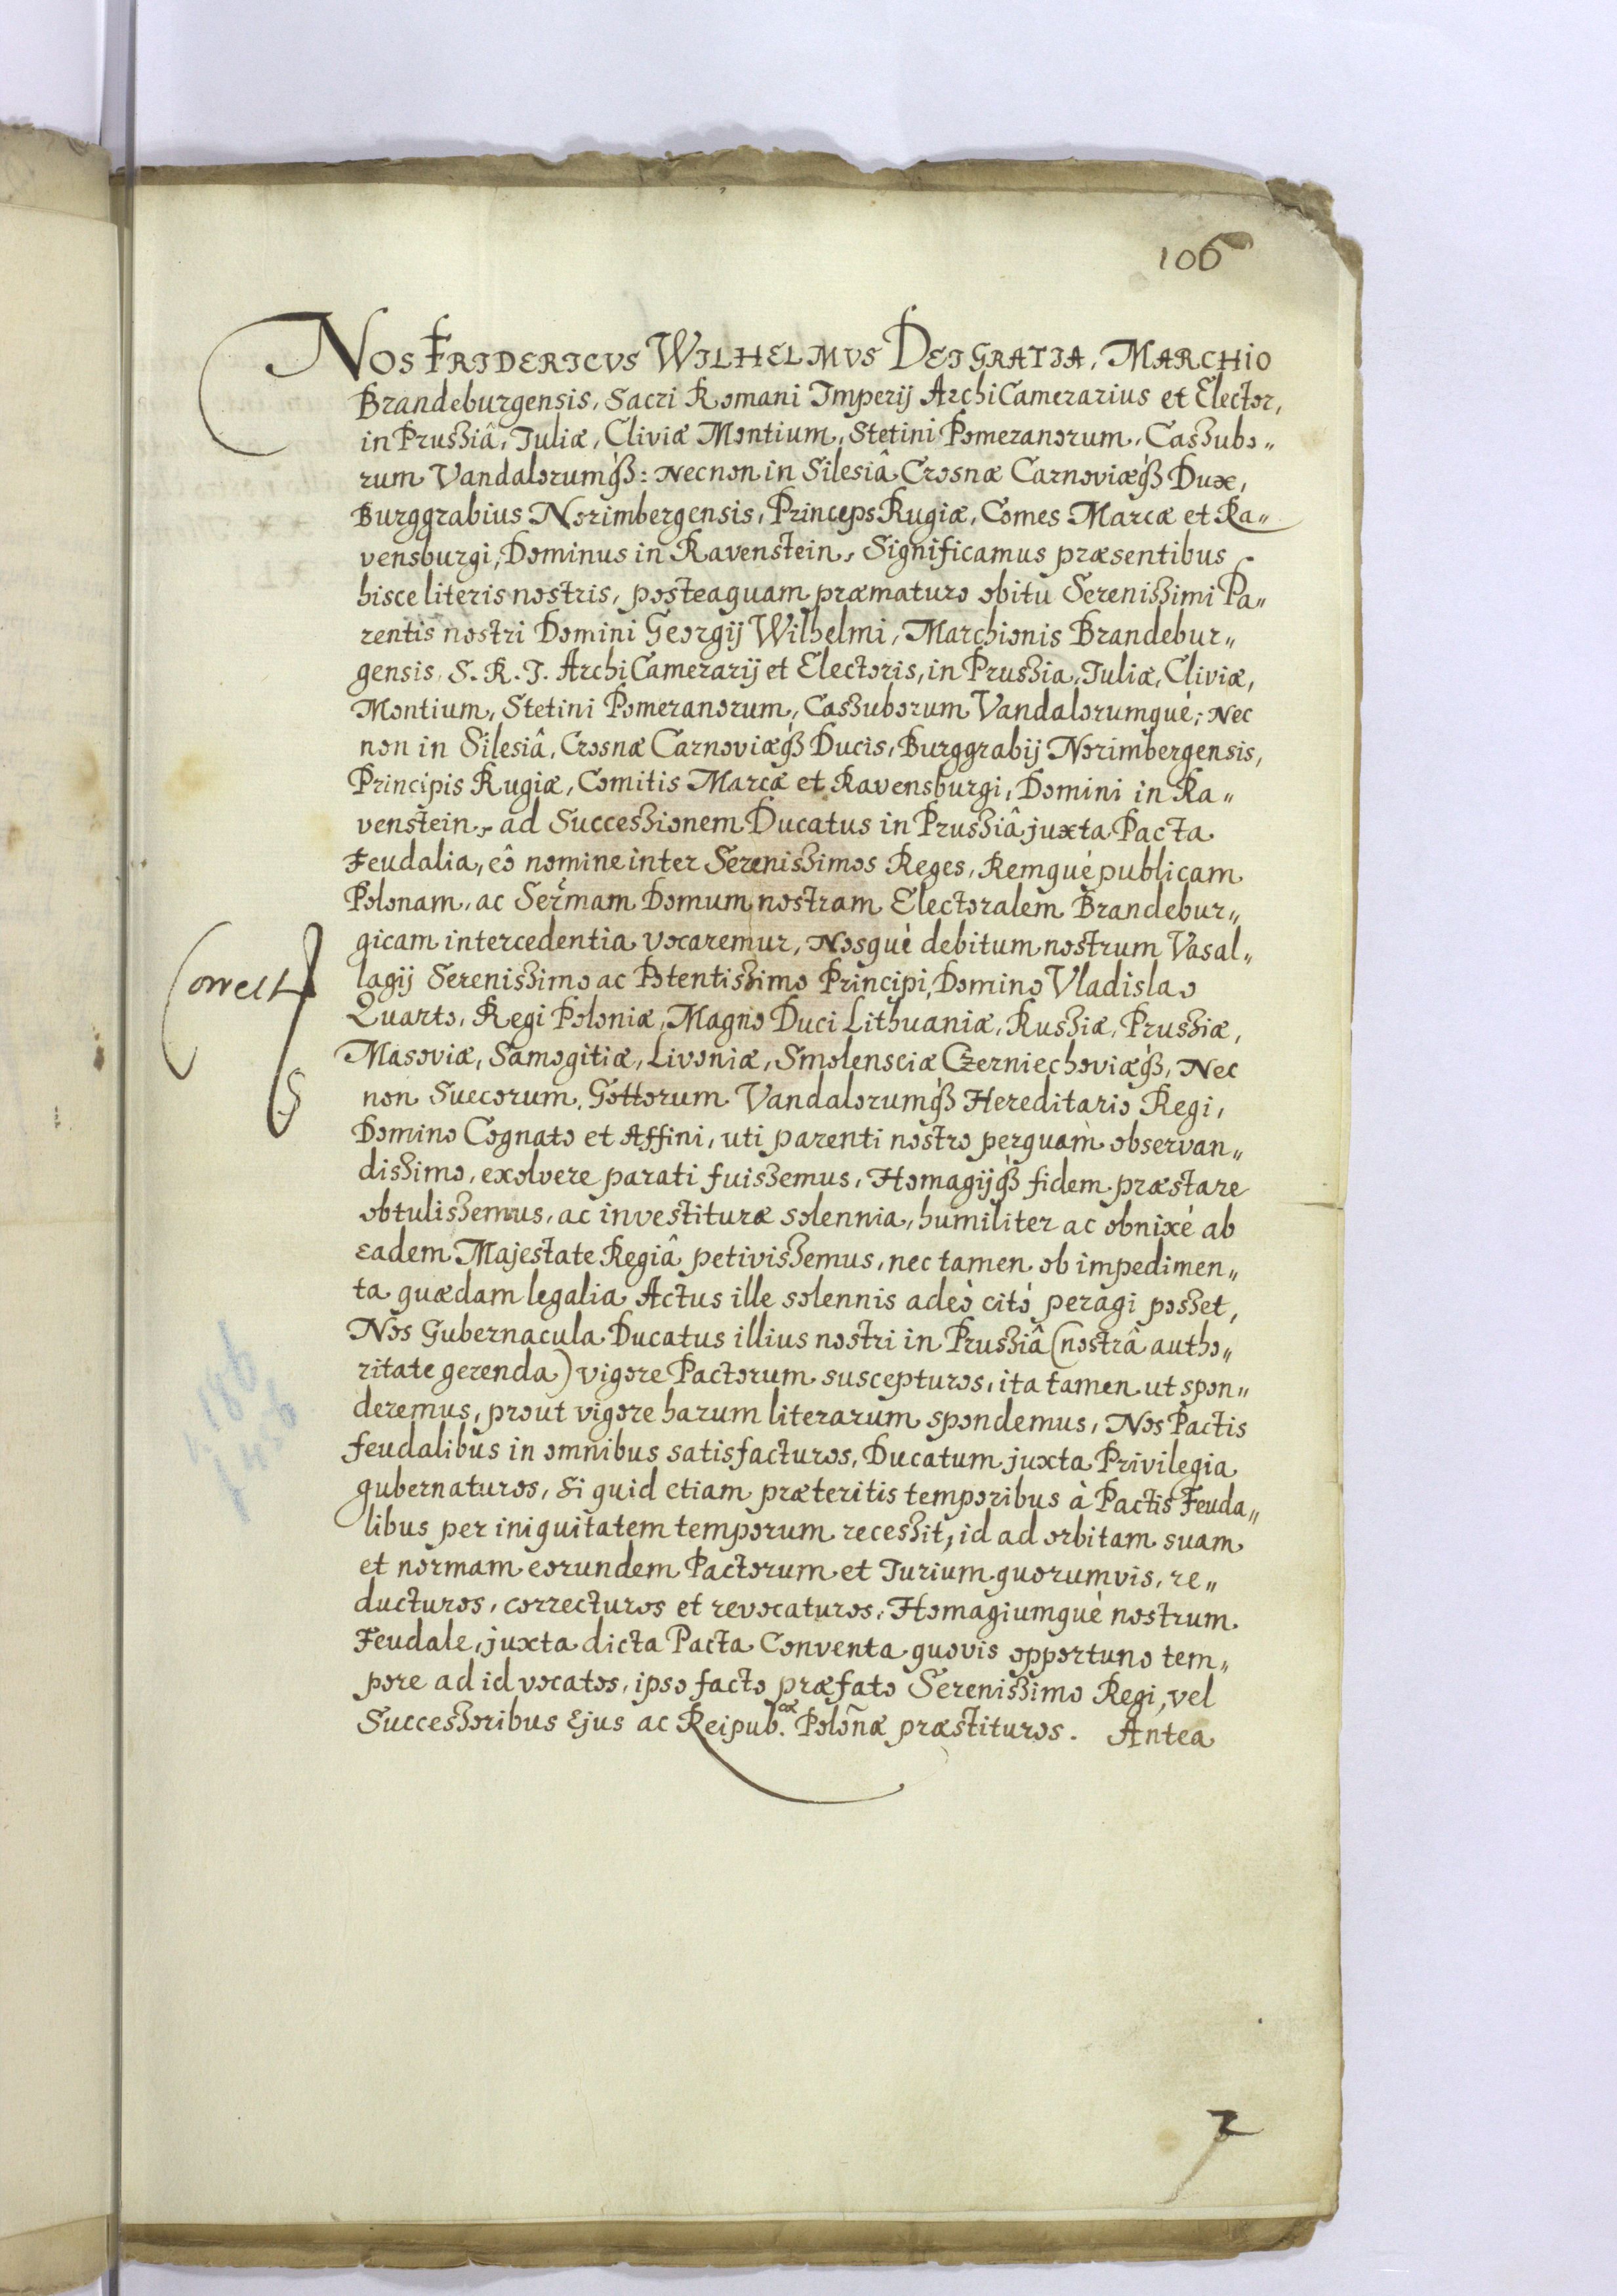 106
NOS FRIDERICVS WILHELMVS DEI GRATIA, MARCHIO
Brandeburgensis, Sacri Romani Imperij ArchiCamerarius et Elector,
in Prußiâ, Juliæ, Cliviæ Montium, Stetini Pomeranorum, Caßubo„
rum Vandalorumq́ꝫ: Nec non in Silesiâ Crosnæ Carnoviæq́ꝫ Dux,
Burggrabius Norimbergensis, Princeps Rugiæ, Comes Marcæ et Ra„
vensburgi, Dominus in Ravenstein, Significamus præsentibus
hisce literis nostris, posteaquam præmaturo obitu Serenißimi Pa„
rentis nostri Domini Georgij Wilhelmi, Marchionis Brandebur„
gensis, S. R. I. ArchiCamerarij et Electoris, in Prußia, Juliæ, Cliviæ,
Montium, Stetini Pomeranorum, Caßuborum Vandalorumqué; Nec
non in Silesiâ, Crosnæ Carnoviæq́ꝫ Ducis, Burggrabij Norimbergensis,
Principis Rugiæ, Comitis Marcæ et Ravensburgi, Domini in Ra„
venstein, ad Succeßionem Ducatus in Prußiâ juxta Pacta
Feudalia, eô nomine inter Serenißimos Reges, Remqué publicam
Polonam, ac Serm̃am Domum nostram Electoralem Brandebur„
gicam intercedentia vocaremur, Nosqué debitum nostrum Vasal„
Correct
lagij Serenißimo ac Potentißimo Principi, Domino Vladislao
Quarto, Regi Poloniæ, Magno Duci Lithuaniæ, Rußiæ, Prußiæ,
Masoviæ, Samogitiæ, Livoniæ, Smolensciæ Czerniechoviæq́ꝫ, Nec
non Suecorum, Gottorum Vandalorumq́ꝫ Hereditario Regi,
Domino Cognato et Affini, uti parenti nostro perquam observan„
dißimo, exolvere parati fuißemus, Homagijq́ꝫ fidem præstare
obtulißemus, ac investituræ solennia, humiliter ac obnixé ab
eadem Majestate Regiâ petivißemus, nec tamen ob impedimen„
ta quædam legalia Actus ille solennis adeò citò peragi poßet,
Nos Gubernacula Ducatus illius nostri in Prußiâ (nostrâ autho„
ritate gerenda) vigore Pactorum suscepturos, ita tamen ut spon„
deremus, prout vigore harum literarum spondemus, Nos Pactis
feudalibus in omnibus satisfacturos, Ducatum juxta Privilegia
gubernaturos, Si quid etiam præteritis temporibus à Pactis Feuda„
libus per iniquitatem temporum receßit, id ad orbitam suam
et normam eorundem Pactorum et Jurium quorumvis, re„
ducturos, correcturos et revocaturos, Homagiumqué nostrum
Feudale, juxta dicta Pacta Conventa quovis opportuno tem„
pore ad id vocatos, ipso facto præfato Serenißimo Regi, vel
Succeßoribus Ejus ac Reipub.æ Polon̄æ præstituros. Antea
2